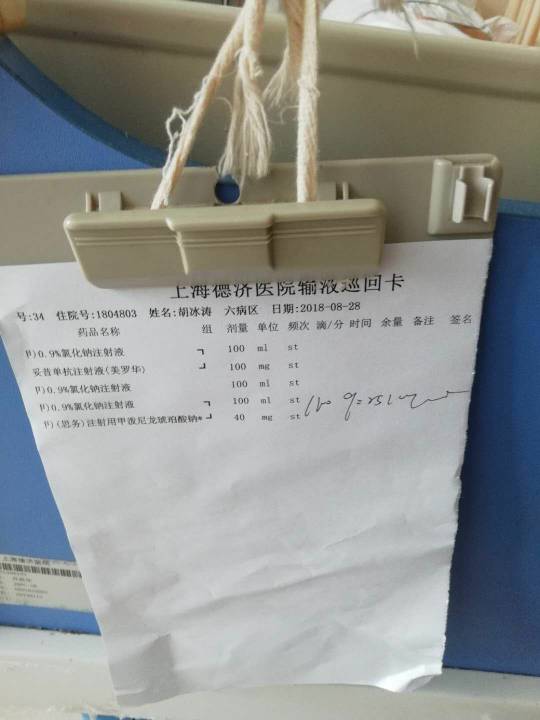 上海德济医院输液巡回卡
号:34 住院号:1804803 姓名:胡冰涛 六病区 日期:2018-08-28
药品名称 组 剂量 单位 频次 滴/分 时间 余量 备注 签名
甲)0.9%氯化钠注射液 ┐ 100 ml st
妥昔单抗注射液(美罗华) ┘ 100 mg st
甲)0.9%氯化钠注射液 100 ml st
甲)0.9%氯化钠注射液 ┐ 100 ml st
甲)(思务)注射用甲泼尼龙琥珀酸钠* ┘ 40 mg st
上海德济医院